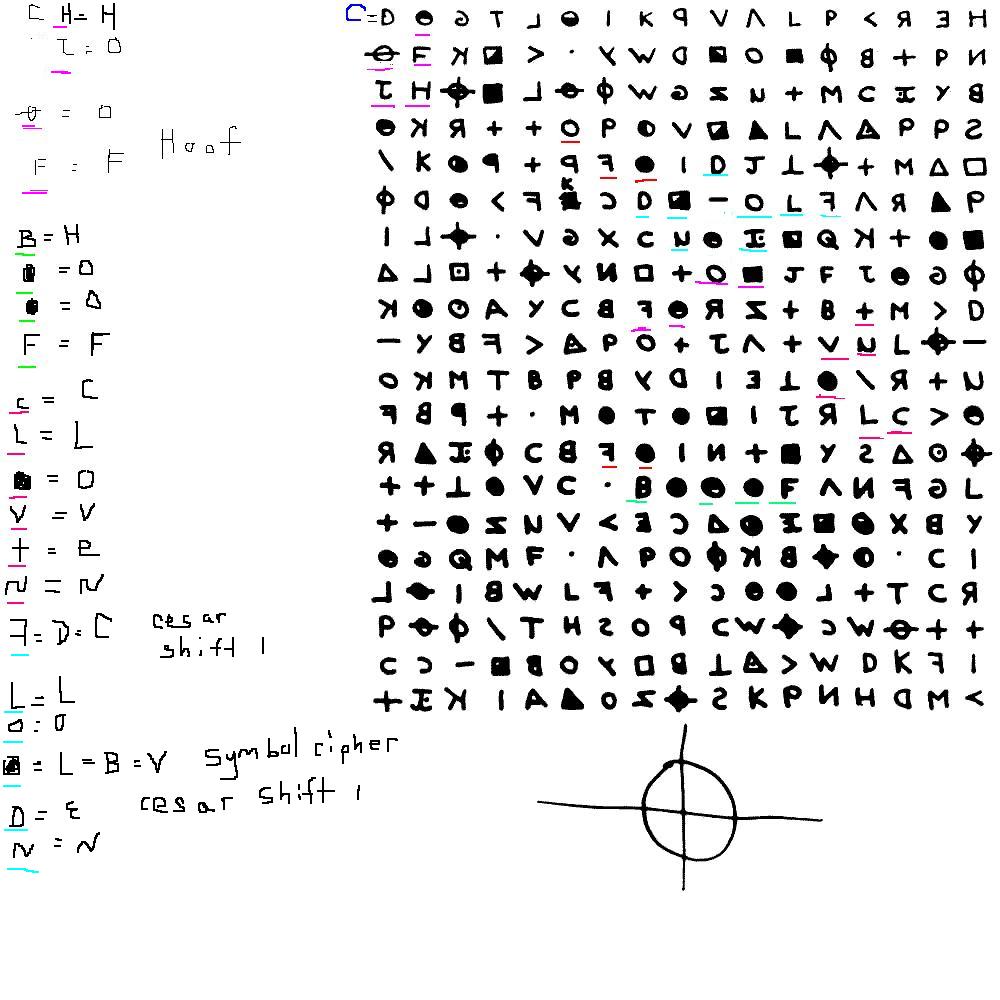 C H = H
τ = O
θ = O
F = F
Hoof
B = H
■ = O
● = O
F = F
c = C
L = L
■ = O
V = V
+ = e
N = N
ꟻ = D = C
cesar shift 1
L = L
O = O
◪ = L = B = V symbol cipher
D = E cesar shift 1
N = N
C = D ◒ G T ⅃ ◒ I K q V Λ L P < Я Ǝ H
⊖ F K ◪ > · Y W D ◪ O ■ Φ B + P N
Ʇ H ⌖ ■ L ⊖ Φ W G Z U + M C I Y B
◒ K Я + + O P ◐ V ◪ ▲ L Λ △ P P S
/ K ● q + q ꟻ ● I D J ⊥ ⌖ + M △ □
Φ D ◒ < ꟻ ■ Ɔ D ◪ - O L ꟻ Λ Я ▲ P
I ⅃ ⌖ · V G X C N ◒ I ◪ Q K + ● ■
△ L ⊡ + ⌖ Y N □ + O ■ J F Ʇ ◒ G Φ
K ● ⊙ A Y C B ꟻ ◒ Я Z + B + M > D
- Y B F > △ P O + Ʇ Λ + V N L ⌖ -
O K M T B P B Y D I E ⊥ ● / Я + U
F B q + · M ● T ● ◪ I Ʇ Я L C > ◒
Я ▲ I Φ C B ꟻ ● I N + ■ Y S △ ⊙ ⌖
+ + ⊥ ● V C · B ● ◒ ● F Λ N F G L
+ - ● Z N V < E Ɔ △ ● I ◪ ● X B Y
● G Q M F · Λ P O Φ K B ⌖ ◐ · C I
L ⊖ I B W L F + < Ɔ ◒ ● ⅃ + T C Я
P ⊖ Φ / T H S O q C W ⌖ Ɔ W ⊖ + +
C Ɔ - ◪ B O Y □ B ⊥ △ > W D K ꟻ I
+ I K I A ▲ O Z ⌖ S K P N H D M <